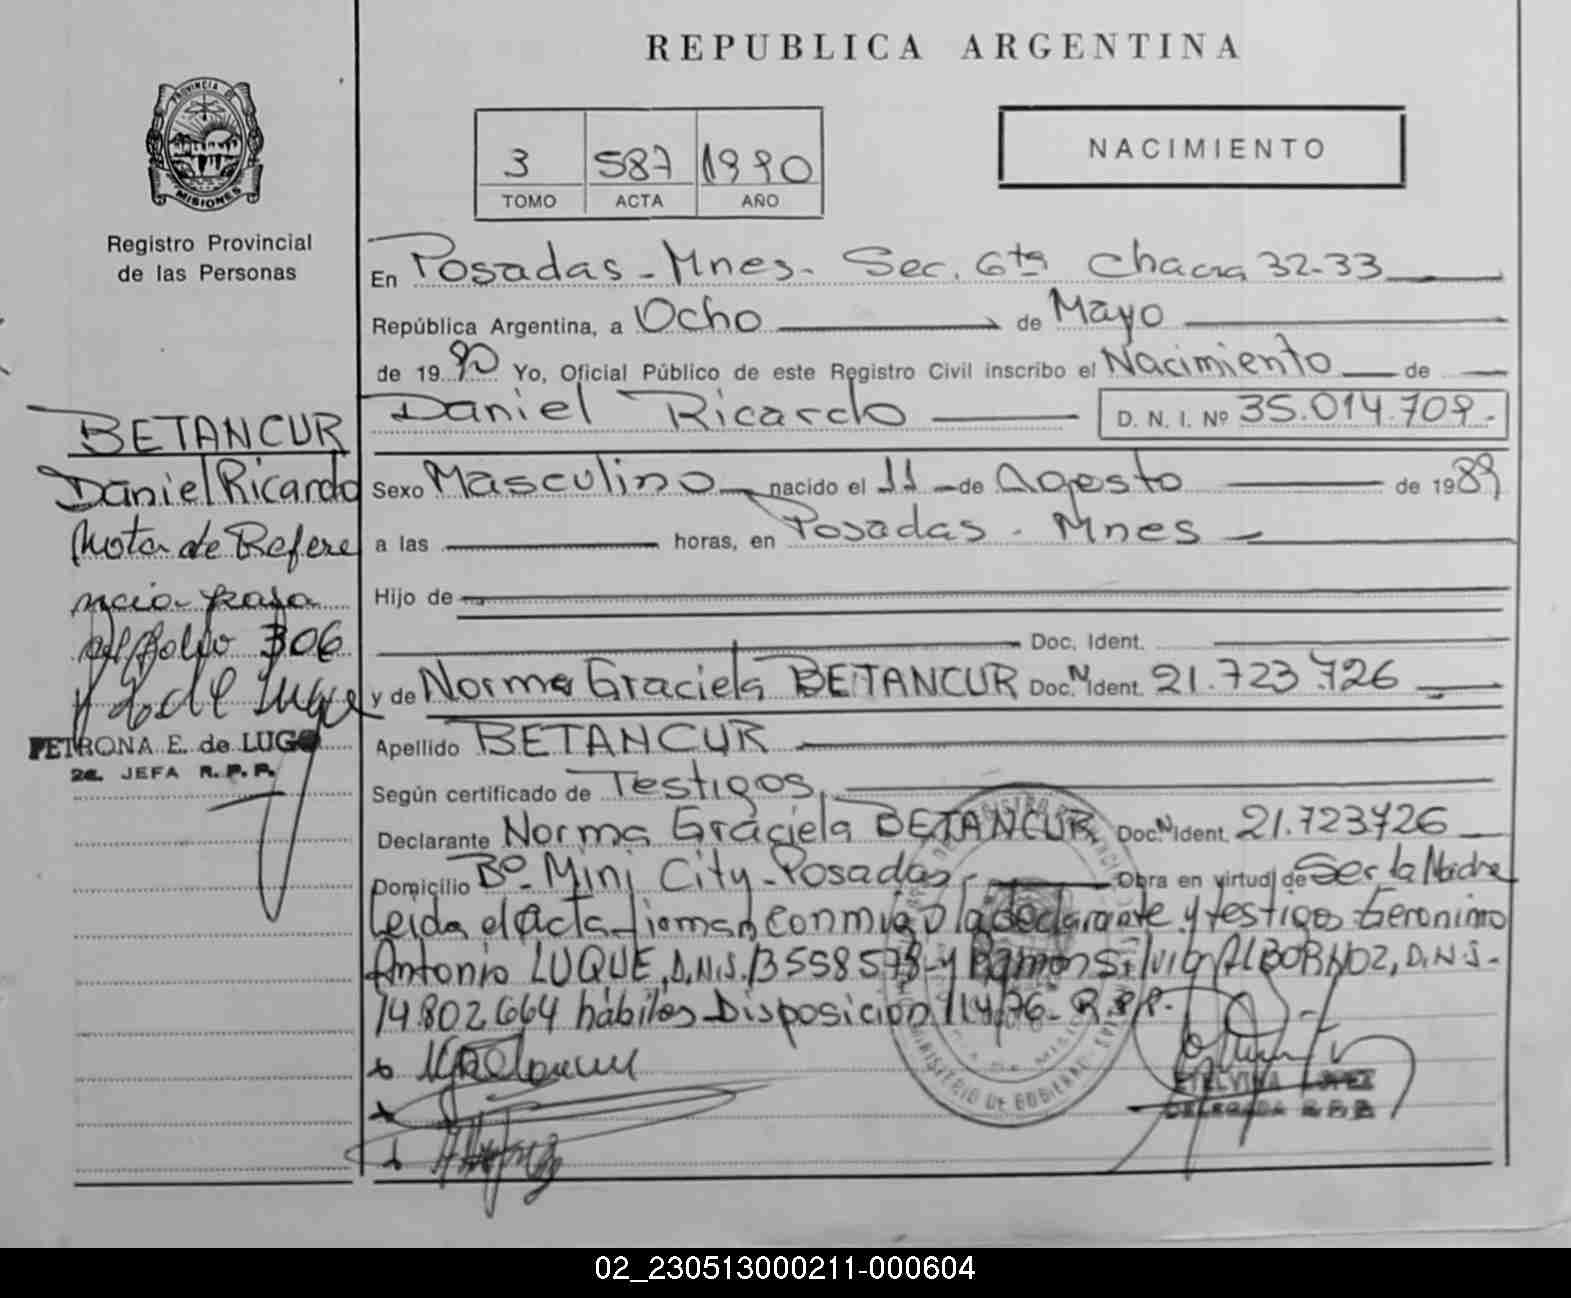 REPUBLICA ARGENTINA
PROVINCIA DE
MISIONES
Registro Provincial
de las Personas
3 587 1990
TOMO ACTA AÑO
NACIMIENTO
En Posadas - Mnes - Sec. 6ta Chacra 32-33
República Argentina, a Ocho de Mayo
de 1990 Yo, Oficial Público de este Registro Civil inscribo el Nacimiento de
Daniel Ricardo D. N. I. Nº 35.014.709.-
Sexo Masculino nacido el 11 de Agosto de 1989
a las horas, en Posadas - Mnes
Hijo de
Doc. Ident.
y de Norma Graciela BETANCUR Doc. N Ident. 21.723.726
Apellido BETANCUR
Según certificado de Testigos
Declarante Norma Graciela BETANCUR Doc. N Ident. 21.723726
Domicilio Bº Mini City - Posadas - Obra en virtud de Ser la Madre
Leida el acta firman conmigo la declarante y testigos Geronimo
Antonio LUQUE, D.N.I. 13558578 y Ramon Silvio ALBORNOZ, D.N.I.
14.802.664 hábiles Disposición 114/76 - R.P.P.
ETELVINA LOPEZ
DELEGADA R.P.P.
BETANCUR
Daniel Ricardo
Nota de Refere
ncia pasa
al folio 306
PETRONA E. de LUGO
2a. JEFA R.P.P.
02_230513000211-000604